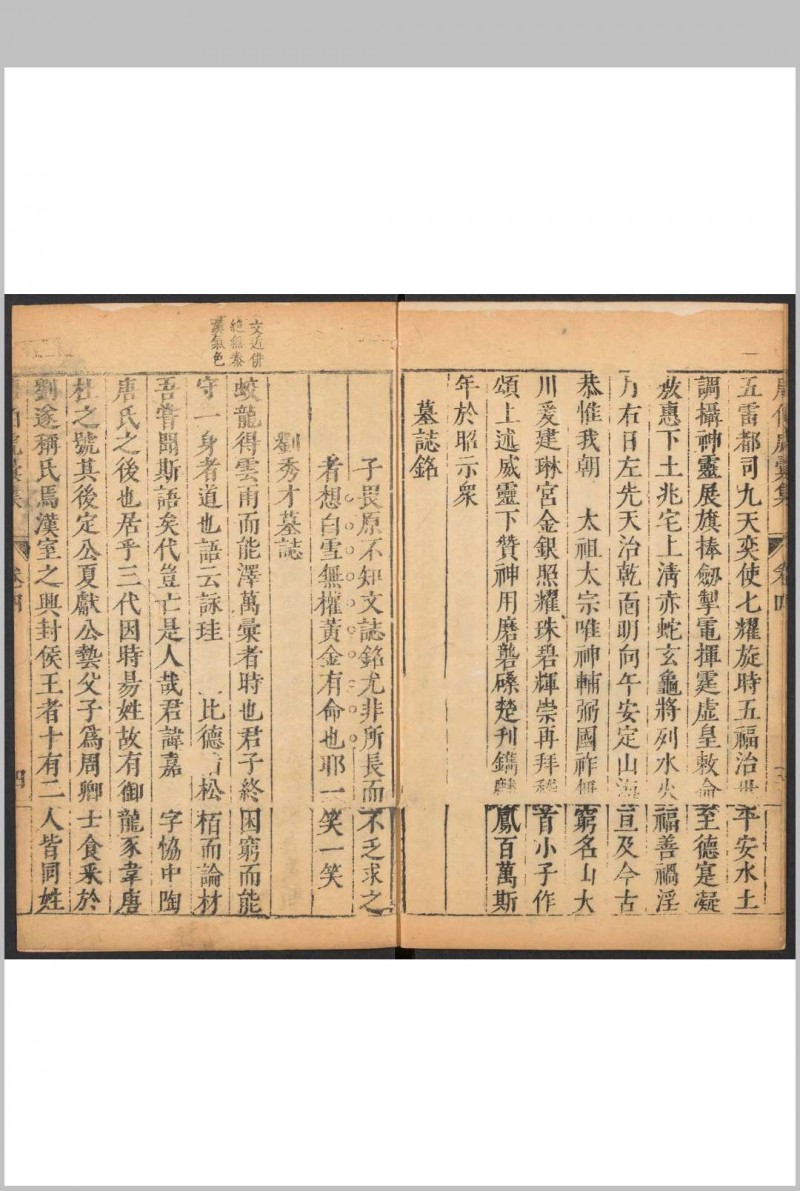 唐伯虎彙集　卷四
五雷都司九天奕使七耀旋時五福治世平安水土
謂攝神靈展旗捧劒掣電揮霆虛皇敕命至德寔凝
敷惠下土兆宅上淸赤蛇玄龜將列水火福善禍淫
月右日左先天治乾面明向午安定山海亘及今古
恭惟我朝　太祖太宗唯神輔弼國祚無窮名山大
川爰建琳宮金銀照耀珠碧輝崇再拜稽首小子作
頌上述威靈下贊神用磨礱礫楚刊鐫麟鳳百萬斯
年於昭示衆
墓誌銘
子畏原不知文誌銘尤非所長而不乏求之
者想白雪無權黃金有命也耶一笑一笑
劉秀才墓誌
文近俳
絶無秦
漢氣色
蛟龍得雲雨而能澤萬彙者時也君子終困窮而能
守一身者道也語云詠珪　　比德　松栢而論材
吾嘗聞斯語矣代豈亡是人哉君諱嘉　字協中陶
唐氏之後也居乎三代因時易姓故有御龍豕韋唐
杜之號其後定公夏獻公摯父子爲周卿士食采於
劉遂稱氏焉漢室之興封侯王者十有二人皆同姓
卷四
四